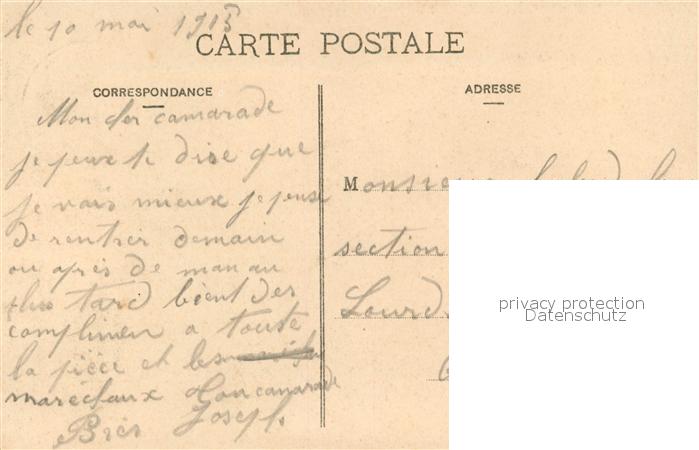 le 10 mai 1915
CARTE POSTALE
CORRESPONDANCE
ADRESSE
Mon cher camarade
je peux te dire que
je vais mieux je pense
de rentrer demain
ou après de main au
plus tard bient des
complimen a toute
la pièce et les
maréchaux Ton camarade
Joseph
Monsieur
section
Lourd
privacy protection
Datenschutz